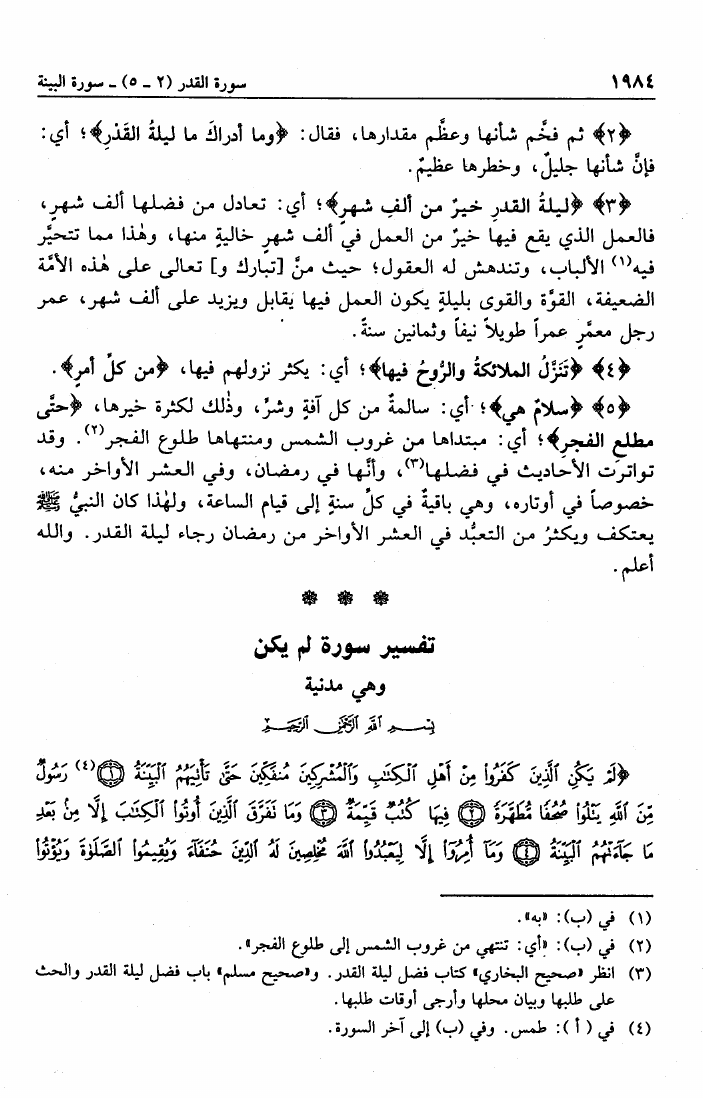 ١٩٨٤ سورة القدر (٢ - ٥) - سورة البينة
﴿٢﴾ ثم فخَّم شأنها وعظَّم مقدارها، فقال: ﴿وما أدراكَ ما ليلةُ القَدْرِ﴾؛ أي:
فإنَّ شأنها جليلٌ، وخطرها عظيمٌ.
﴿٣﴾ ﴿ليلةُ القدرِ خيرٌ من ألفِ شهرٍ﴾؛ أي: تعادل من فضلها ألف شهرٍ،
فالعمل الذي يقع فيها خيرٌ من العمل في ألف شهرٍ خاليةٍ منها، وهٰذا مما تتحيَّر
فيه(١) الألباب، وتندهش له العقول؛ حيث منَّ [تبارك و] تعالى على هٰذه الأمَّة
الضعيفة، القوَّة والقوى بليلةٍ يكون العمل فيها يقابل ويزيد على ألف شهر، عمر
رجل معمَّرٍ عمراً طويلاً نيفاً وثمانين سنةً.
﴿٤﴾ ﴿تَنَزَّلُ الملائكةُ والرُّوحُ فيها﴾؛ أي: يكثر نزولهم فيها، ﴿من كلِّ أمرٍ﴾.
﴿٥﴾ ﴿سلامٌ هي﴾؛ أي: سالمةٌ من كل آفةٍ وشرٍّ، وذٰلك لكثرة خيرها، ﴿حتَّى
مطلعِ الفجرِ﴾؛ أي: مبتداها من غروب الشمس ومنتهاها طلوع الفجر(٢). وقد
تواترت الأحاديث في فضلها(٣)، وأنَّها في رمضان، وفي العشر الأواخر منه،
خصوصاً في أوتاره، وهي باقيةٌ في كلِّ سنةٍ إلى قيام الساعة، ولهٰذا كان النبيُّ ﷺ
يعتكف ويكثرُ من التعبُّد في العشر الأواخر من رمضان رجاء ليلة القدر. والله
أعلم.
تفسير سورة لم يكن
وهي مدنية
بِسْمِ ٱللَّهِ ٱلرَّحْمَٰنِ ٱلرَّحِيمِ
﴿لَمْ يَكُنِ ٱلَّذِينَ كَفَرُوا۟ مِنْ أَهْلِ ٱلْكِتَٰبِ وَٱلْمُشْرِكِينَ مُنفَكِّينَ حَتَّىٰ تَأْتِيَهُمُ ٱلْبَيِّنَةُ ١(٤) رَسُولٌ
مِّنَ ٱللَّهِ يَتْلُوا۟ صُحُفًا مُّطَهَّرَةً ٢ فِيهَا كُتُبٌ قَيِّمَةٌ ٣ وَمَا تَفَرَّقَ ٱلَّذِينَ أُوتُوا۟ ٱلْكِتَٰبَ إِلَّا مِنۢ بَعْدِ
مَا جَآءَتْهُمُ ٱلْبَيِّنَةُ ٤ وَمَآ أُمِرُوٓا۟ إِلَّا لِيَعْبُدُوا۟ ٱللَّهَ مُخْلِصِينَ لَهُ ٱلدِّينَ حُنَفَآءَ وَيُقِيمُوا۟ ٱلصَّلَوٰةَ وَيُؤْتُوا۟
(١) في (ب): «به».
(٢) في (ب): «أي: تنتهي من غروب الشمس إلى طلوع الفجر».
(٣) انظر «صحيح البخاري» كتاب فضل ليلة القدر. و«صحيح مسلم» باب فضل ليلة القدر والحث
على طلبها وبيان محلها وأرجى أوقات طلبها.
(٤) في ( أ ): طمس. وفي (ب) إلى آخر السورة.